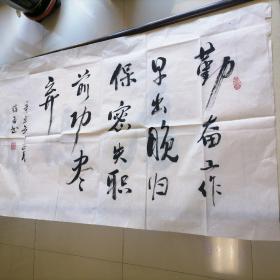 勤奋工作
早出晚归
保密失职
前功尽
弃